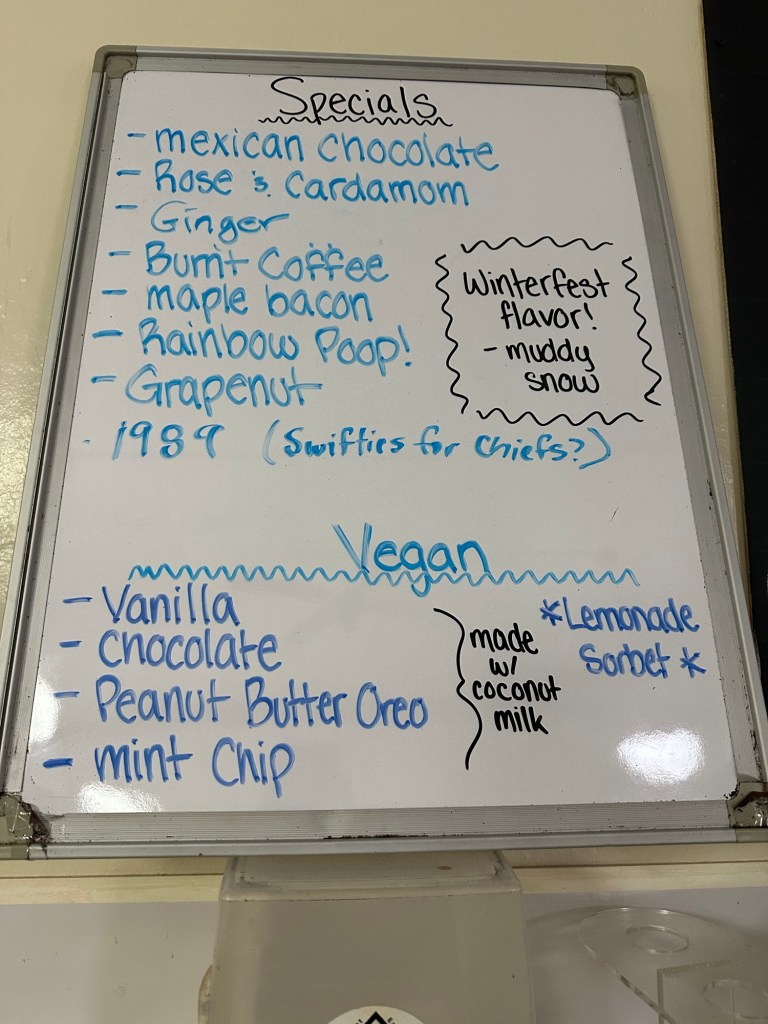 Specials
- mexican chocolate
- Rose & Cardamom
- Ginger
- Burnt Coffee
- maple bacon
- Rainbow Poop!
- Grapenut
- 1989 (Swifties for Chiefs?)
Winterfest
flavor!
- muddy
snow
Vegan
- Vanilla
- Chocolate
- Peanut Butter Oreo
- mint Chip
made
w/
coconut
milk
*Lemonade
Sorbet *